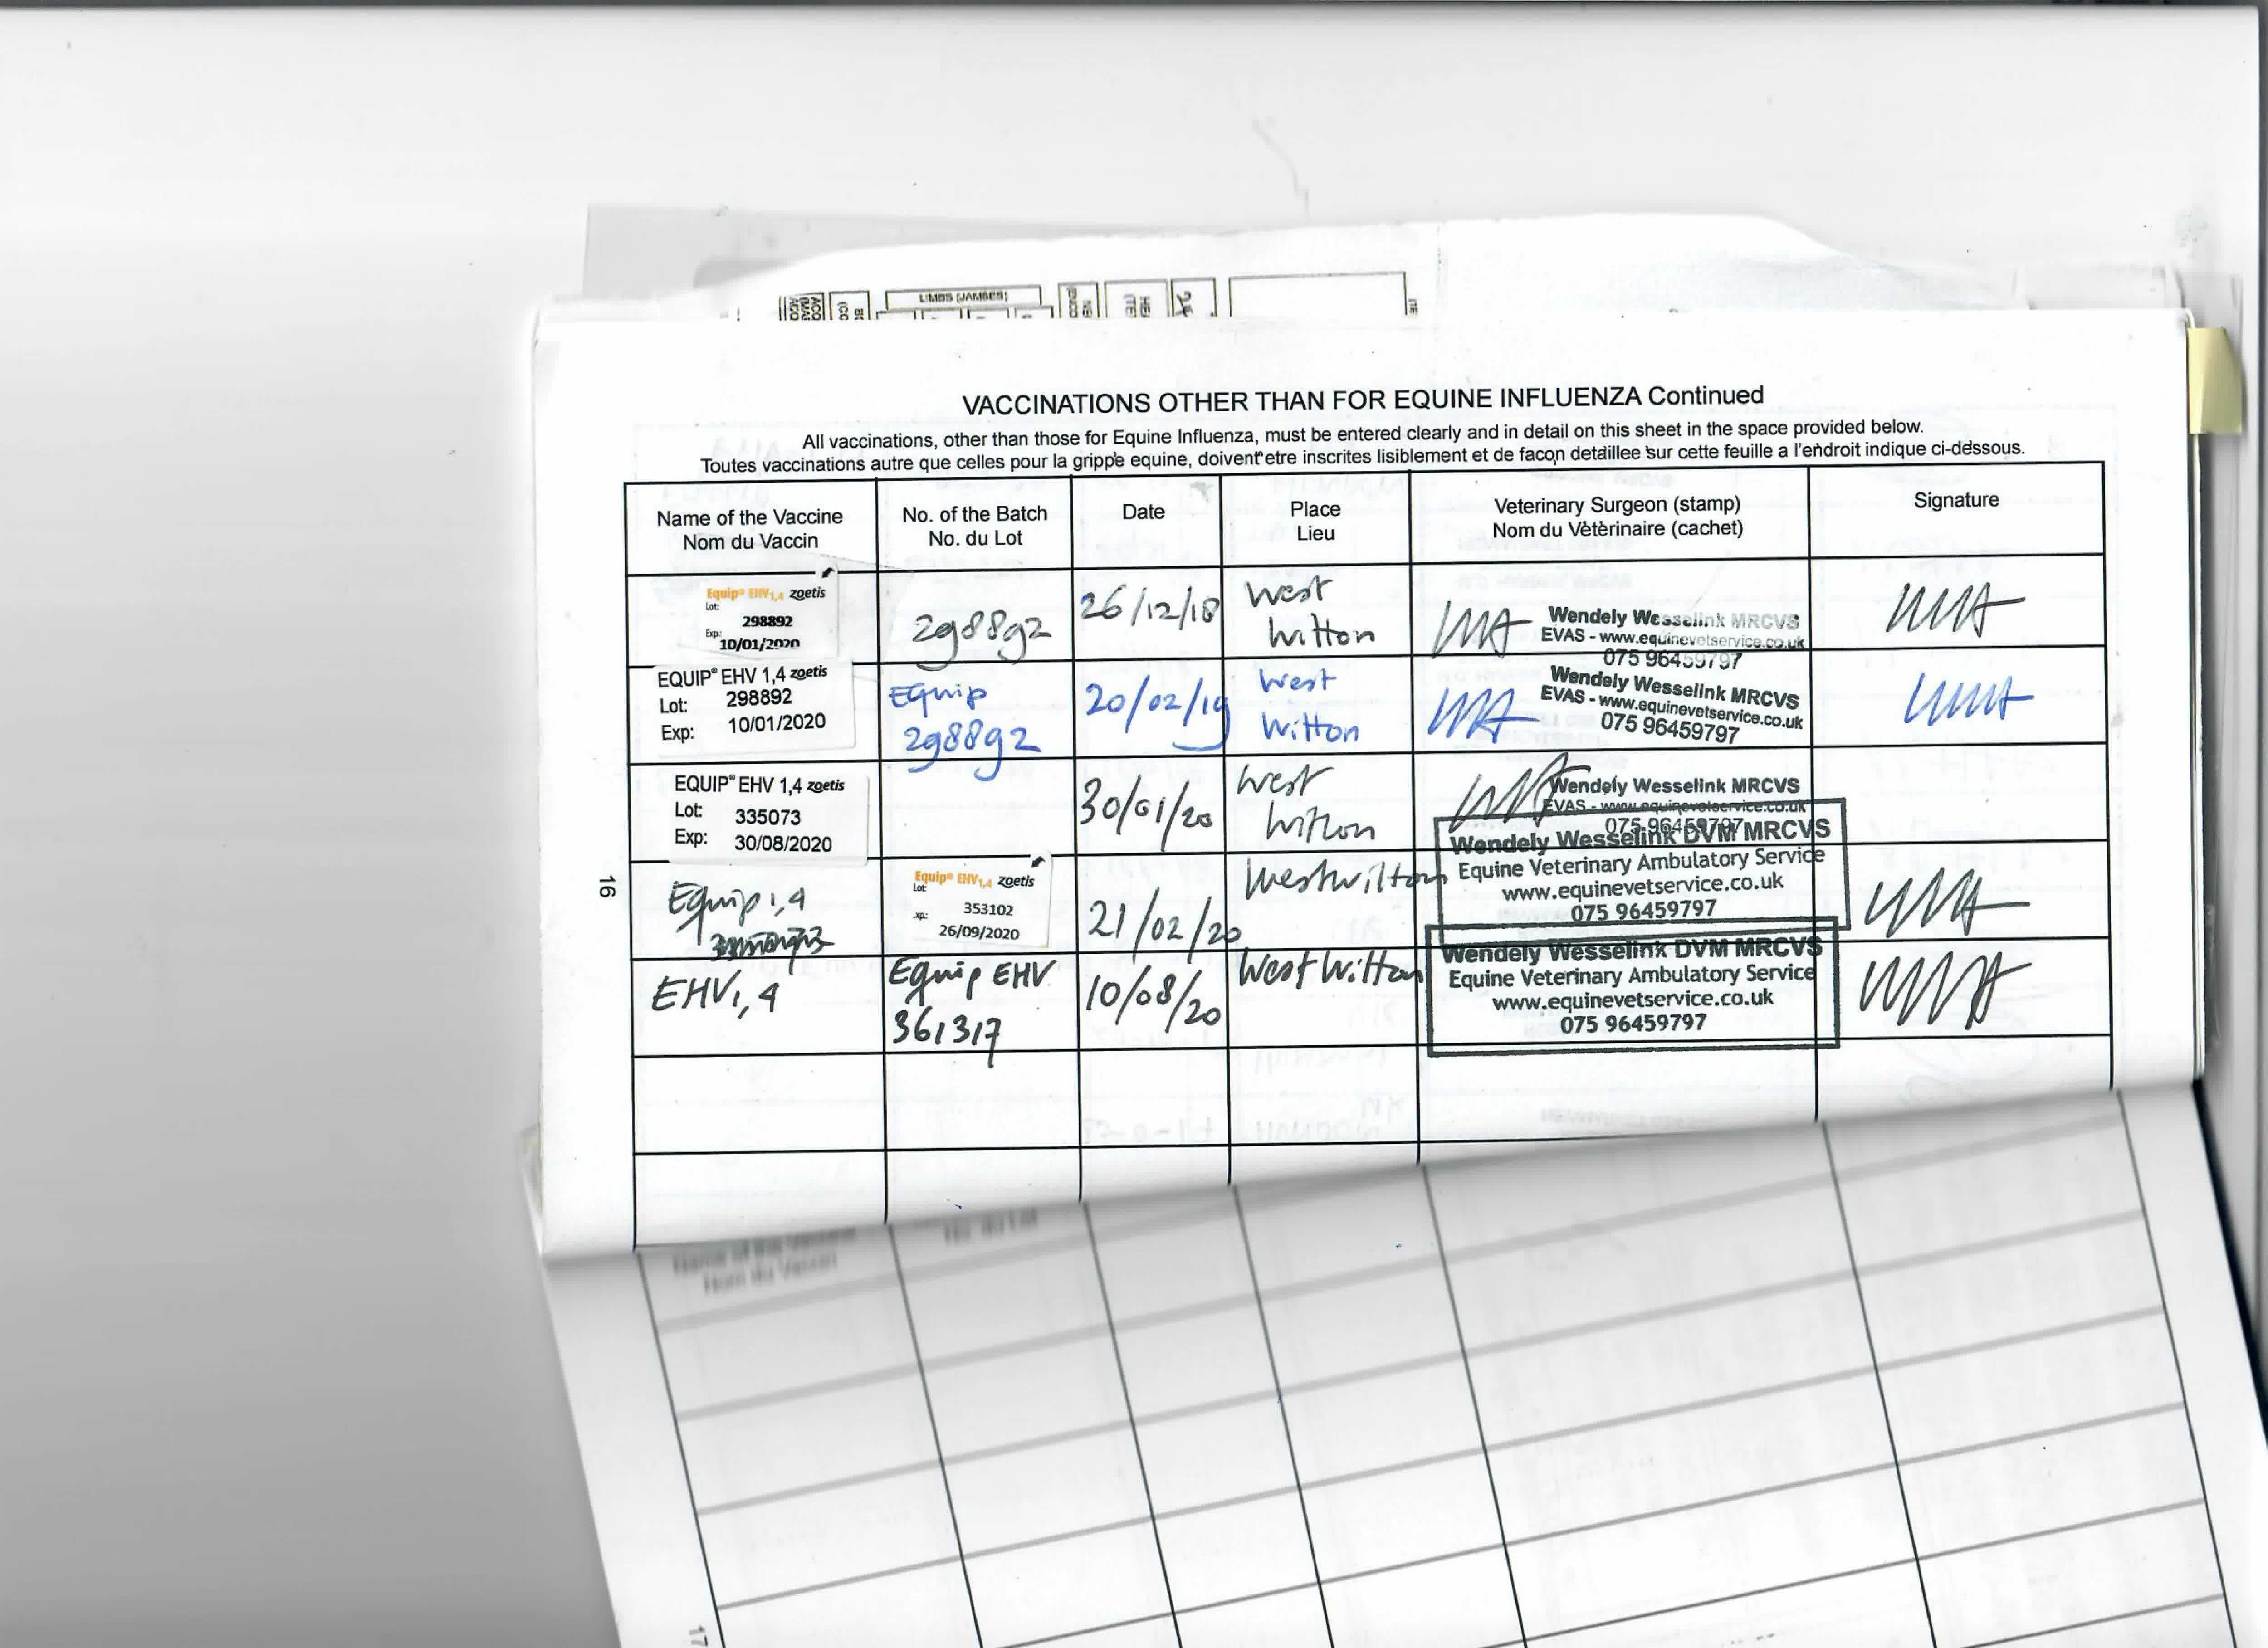 LIMBS (JAMBES)
VACCINATIONS OTHER THAN FOR EQUINE INFLUENZA Continued
All vaccinations, other than those for Equine Influenza, must be entered clearly and in detail on this sheet in the space provided below.
Toutes vaccinations autre que celles pour la grippe equine, doivent etre inscrites lisiblement et de facon detaillee sur cette feuille a l'endroit indique ci-dessous.
Name of the Vaccine
Nom du Vaccin
No. of the Batch
No. du Lot
Date
Place
Lieu
Veterinary Surgeon (stamp)
Nom du Vètèrinaire (cachet)
Signature
Equip® EHV1,4 zoetis
Lot:
298892
Exp:
10/01/2020
298892
26/12/18
West
Witton
Wendely Wesselink MRCVS
EVAS - www.equinevetservice.co.uk
075 96459797
EQUIP® EHV 1,4 zoetis
Lot: 298892
Exp: 10/01/2020
Equip
298892
20/02/19
West
Witton
Wendely Wesselink MRCVS
EVAS - www.equinevetservice.co.uk
075 96459797
EQUIP® EHV 1,4 zoetis
Lot: 335073
Exp: 30/08/2020
30/01/20
West
Witton
Wendely Wesselink MRCVS
EVAS - www.equinevetservice.co.uk
075 96459797
Equip 1,4
Equip® EHV1,4 zoetis
Lot:
353102
xp:
26/09/2020
21/02/20
Westwitton
Wendely Wesselink DVM MRCVS
Equine Veterinary Ambulatory Service
www.equinevetservice.co.uk
075 96459797
EHV1,4
Equip EHV
361317
10/08/20
West Witton
Wendely Wesselink DVM MRCVS
Equine Veterinary Ambulatory Service
www.equinevetservice.co.uk
075 96459797
16
Name of the Vaccine
Nom du Vaccin
No. du Lot
17